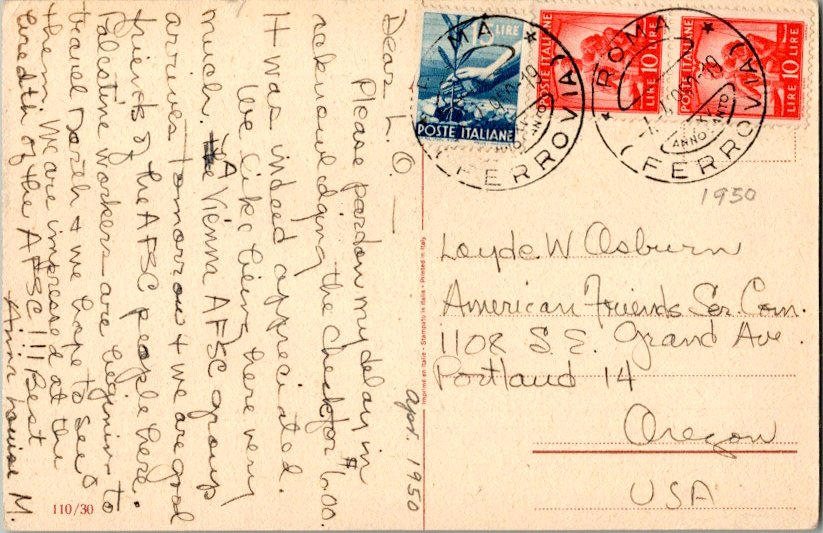 Dear L. O. —
Please pardon my delay in
acknowledging the check for $6.00.
It was indeed appreciated.
We like being here very
much. A Vienna AFSC group
arrives tomorrow & we are good
friends of the AFSC people here.
Palestine workers are begining to
travel North & we hope to see
them. We are impressed at the
credth of the AFSC!!! Best
Anna Louise M.
Apr. 1950
110/30
Imprimé en Italie - Stampato in Italia - Printed in Italy
15 LIRE
POSTE ITALIANE
POSTE ITALIANE
LIRE 10 LIRE
POSTE ITALIANE
LIRE 10 LIRE
ROMA
(FERROVIA)
ROMA
ANNO SANTO
(FERROVIA)
1950
Loyde W Osburn
American Friends Ser. Com.
1108 S.E. Grand Ave.
Portland 14
Oregon
USA